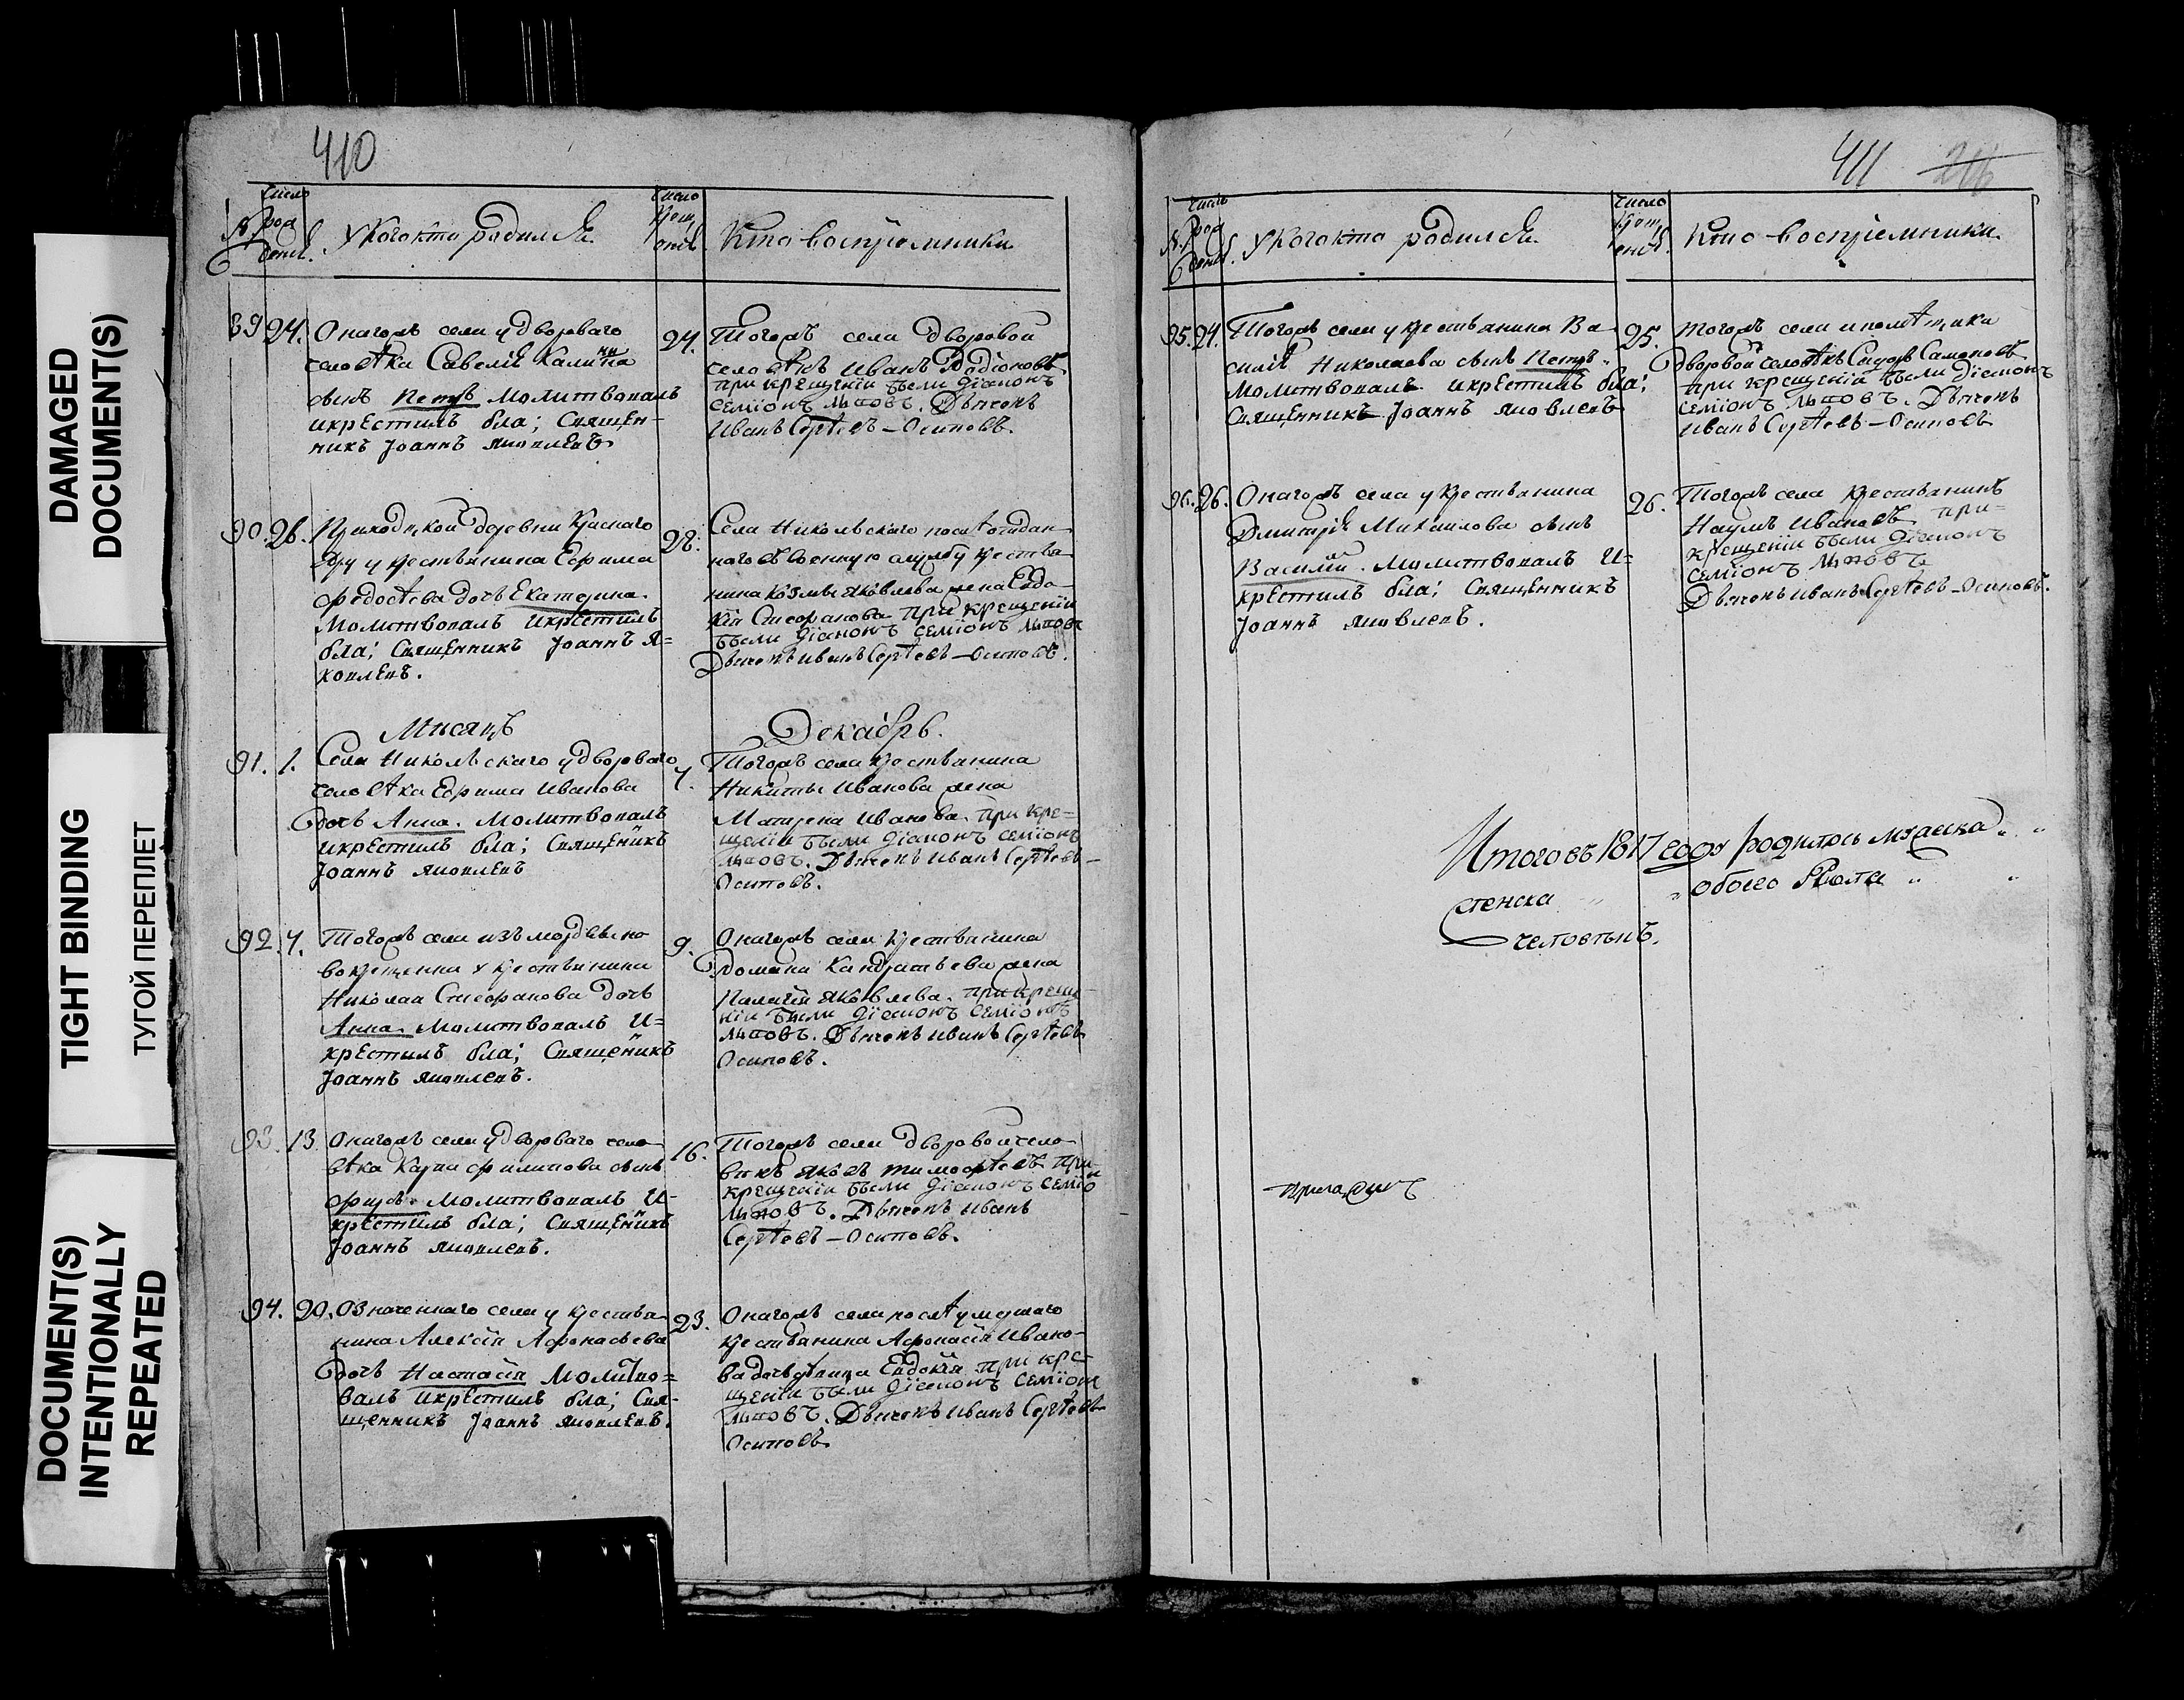 DAMAGED
DOCUMENT(S)
TIGHT BINDING
ТУГОЙ ПЕРЕПЛЕТ
DOCUMENT(S)
INTENTIONALLY
REPEATED
410
Число
рож
денiя.
У кого кто родился.
Число
крещ
енiя.
Кто воспрiемники
89 24. Онагожъ села у двороваго
человѣка Савелiя Калинина
сынъ Петръ Молитвовалъ
и крестилъ бла; Священ-
никъ Iоаннъ Яковлевъ
24. Тогожъ села дворовой
человѣкъ Иванъ Родiоновъ
при крещенiи были дiаконъ
Семiонъ Львовъ. Дьячекъ
Иванъ Сергѣевъ - Осиповъ.
90. 26. Приходской деревни Краснаго
Яру у крестьянина Ефима
Федосѣева дочь Екатерина.
Молитвовалъ и крестилъ
бла; Священникъ Iоаннъ Я=
ковлевъ.
28. Села Никольскаго послѣ отдан
наго въ военную службу крестья
нина Козмы Яковлева жена Евдо-
кiя Стефанова при крещенiи
были дiаконъ Семiонъ Львовъ
Дьячекъ Иванъ Сергѣевъ - Осиповъ.
Мѣсяцъ
Декабрь.
91. 1. Села Никольскаго у двороваго
человѣка Ефима Иванова
дочь Анна. Молитвовалъ
и крестилъ бла; Священикъ
Iоаннъ Яковлевъ
4. Тогожъ села крестьянина
Никиты Иванова жена
Матрена Иванова. при кре=
щенiи были дiаконъ Семiонъ
Львовъ. Дьячекъ Иванъ Сергѣевъ -
Осиповъ.
92. 4. Тогожъ села изъ мордвы но
вокрещенна у крестьянина
Николая Стефанова дочь
Анна. Молитвовалъ и=
крестилъ бла; Священикъ
Iоаннъ Яковлевъ.
9. Онагожъ села крестьянина
Домана Кандратьева жена
Палагiя Яковлева. при креще-
нiи были дiаконъ Семiонъ
Львовъ. Дьячекъ Иванъ Сергѣевъ
Осиповъ.
93. 13 Онагожъ села у двороваго чело
вѣка Карпа Филипова сынъ
Фирсъ. Молитвовалъ и-
крестилъ бла; Священикъ
Iоаннъ Яковлевъ.
16. Тогожъ села дворовой чело
вѣкъ Яковъ Тимофѣевъ при
крещенiи были дiаконъ Семiонъ
Львовъ. Дьячекъ Иванъ
Сергѣевъ - Осиповъ.
94. 20. Означеннаго села у крестья
нина Алексiя Афонасьева
дочь Настасiя Молитво=
валъ и крестилъ бла; Свя-
щенникъ Iоаннъ Яковлевъ.
23. Онагожъ села послѣ умершаго
крестьянина Афонасiя Ивано-
ва дочь дѣвица Евдокiя при кре-
щенiи были дiаконъ Семiонъ
Львовъ. Дьячекъ Иванъ Сергѣевъ
Осиповъ
411
Число
рож
денiя.
У кого кто родился.
Число
крещ
енiя.
Кто воспрiемники.
95. 24. Тогожъ села у крестьянина Ва
силiя Николаева сынъ Петръ.
Молитвовалъ и крестилъ бла;
Священникъ Iоаннъ Яковлевъ
25. Тогожъ села
дворовой человѣкъ Сидоръ Самоновъ
при крещенiи были дiаконъ
Семiонъ Львовъ. Дьячекъ
Иванъ Сергѣевъ - Осиповъ
96. 26. Онагожъ села у крестьянина
Дмитрiя Михаилова сынъ
Василiй. Молитвовалъ и=
крестилъ бла; Священникъ
Iоаннъ Яковлевъ.
26. Тогожъ села крестьянинъ
Наумъ Ивановъ при=
крещенiи были дiаконъ
Семiонъ Львовъ
Дьячекъ Иванъ Сергѣевъ - Осиповъ.
Итого въ 1817 году родилось мужеска
женска обоего пола
человѣкъ.